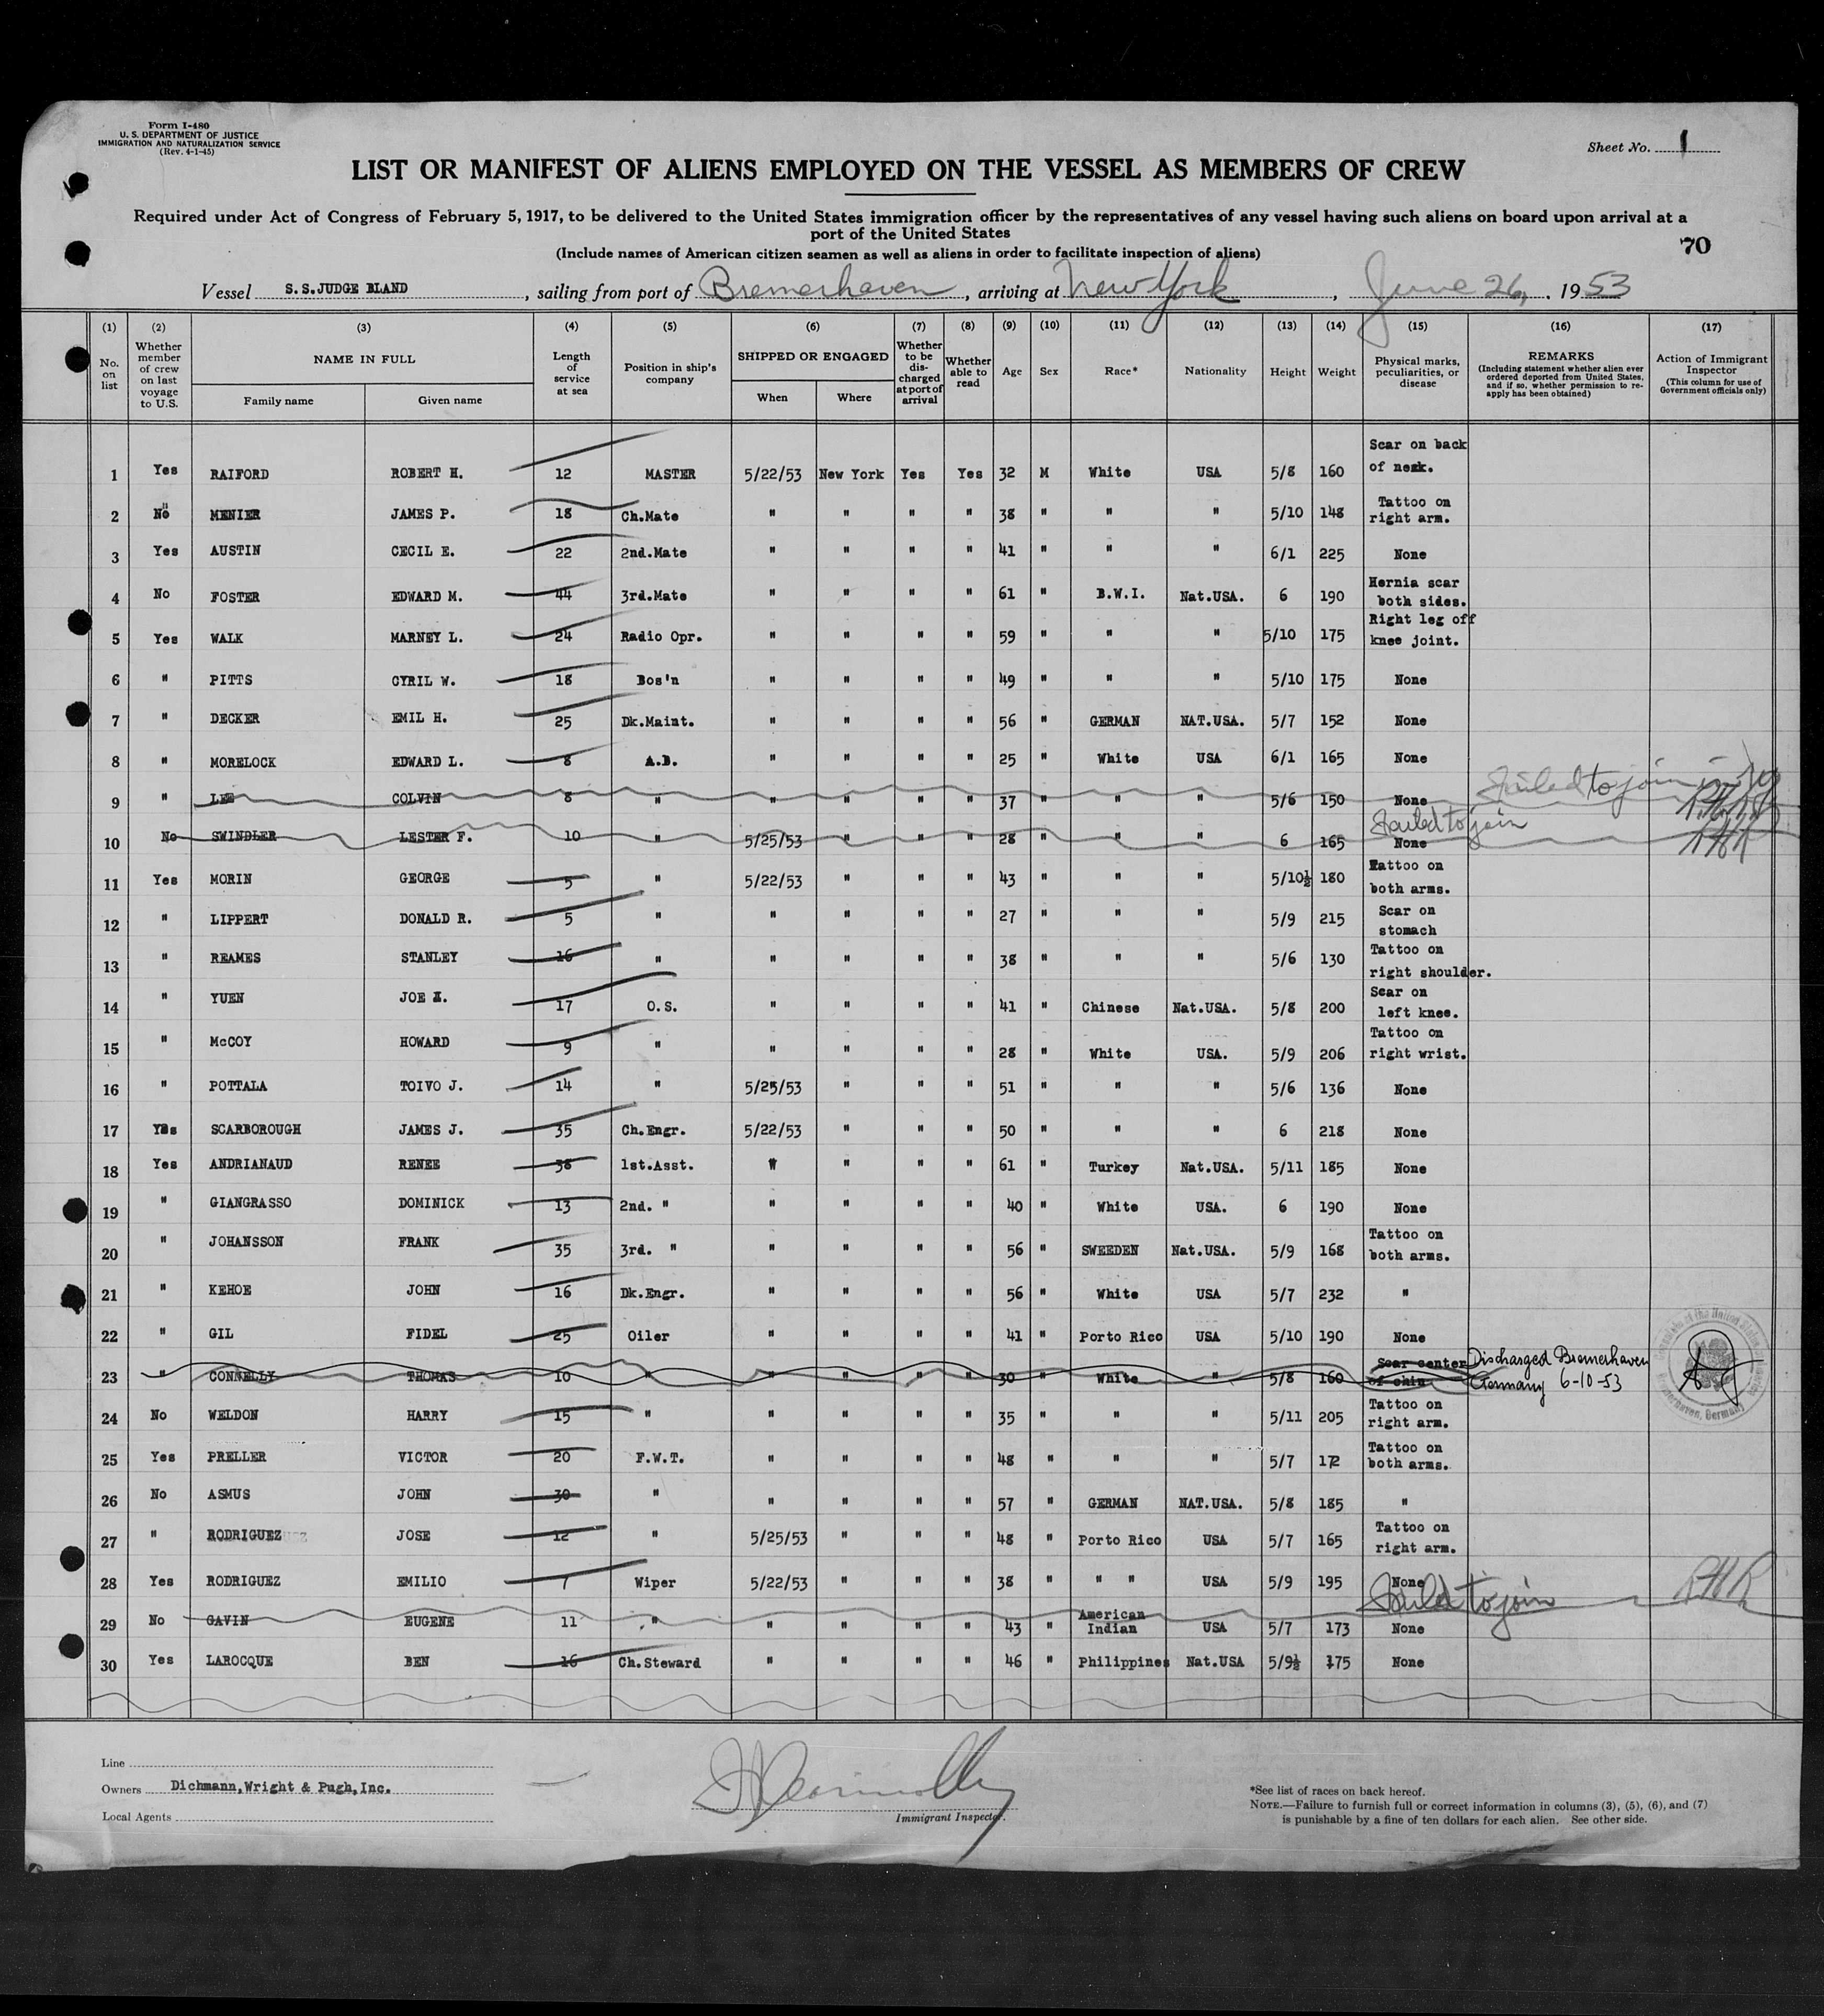 Form I-480
U. S. DEPARTMENT OF JUSTICE
IMMIGRATION AND NATURALIZATION SERVICE
(Rev. 4-1-45)
Sheet No. 1
LIST OR MANIFEST OF ALIENS EMPLOYED ON THE VESSEL AS MEMBERS OF CREW
Required under Act of Congress of February 5, 1917, to be delivered to the United States immigration officer by the representatives of any vessel having such aliens on board upon arrival at a
port of the United States
(Include names of American citizen seamen as well as aliens in order to facilitate inspection of aliens)
70
Vessel S.S.JUDGE BLAND, sailing from port of Bremerhaven, arriving at New York, June 26, 1953
(1) (2) (3) (4) (5) (6) (7) (8) (9) (10) (11) (12) (13) (14) (15) (16) (17)
No. on list
Whether member of crew on last voyage to U.S.
NAME IN FULL
Family name
Given name
Length of service at sea
Position in ship's company
SHIPPED OR ENGAGED
When
Where
Whether to be discharged at port of arrival
Whether able to read
Age
Sex
Race*
Nationality
Height
Weight
Physical marks, peculiarities, or disease
REMARKS
(Including statement whether alien ever ordered deported from United States, and if so, whether permission to reapply has been obtained)
Action of Immigrant Inspector
(This column for use of Government officials only)
1 Yes RAIFORD ROBERT H. 12 MASTER 5/22/53 New York Yes Yes 32 M White USA 5/8 160 Scar on back of neck.
2 No MENIER JAMES P. 18 Ch.Mate " " " " 38 " " " 5/10 148 Tattoo on right arm.
3 Yes AUSTIN CECIL E. 22 2nd.Mate " " " " 41 " " " 6/1 225 None
4 No FOSTER EDWARD M. 44 3rd.Mate " " " " 61 " B.W.I. Nat.USA. 6 190 Hernia scar both sides.
5 Yes WALK MARNEY L. 24 Radio Opr. " " " " 59 " " " 5/10 175 Right leg off knee joint.
6 " PITTS CYRIL W. 18 Bos'n " " " " 49 " " " 5/10 175 None
7 " DECKER EMIL H. 25 Dk.Maint. " " " " 56 " GERMAN NAT.USA. 5/7 152 None
8 " MORELOCK EDWARD L. 8 A.B. " " " " 25 " White USA 6/1 165 None
9 " LEE COLVIN 8 " " " " " 37 " " " 5/6 150 None Failed to join
10 No SWINDLER LESTER F. 10 " 5/25/53 " " " 28 " " " 6 165 None Failed to join
11 Yes MORIN GEORGE 5 " 5/22/53 " " " 43 " " " 5/10½ 180 Tattoo on both arms.
12 " LIPPERT DONALD R. 5 " " " " " 27 " " " 5/9 215 Scar on stomach
13 " REAMES STANLEY 16 " " " " " 38 " " " 5/6 130 Tattoo on right shoulder.
14 " YUEN JOE 17 O.S. " " " " 41 " Chinese Nat.USA. 5/8 200 Scar on left knee.
15 " McCOY HOWARD 9 " " " " " 28 " White USA. 5/9 206 Tattoo on right wrist.
16 " POTTALA TOIVO J. 14 " 5/25/53 " " " 51 " " " 5/6 136 None
17 Yes SCARBOROUGH JAMES J. 35 Ch.Engr. 5/22/53 " " " 50 " " " 6 218 None
18 Yes ANDRIANAUD RENEE 38 1st.Asst. " " " " 61 " Turkey Nat.USA. 5/11 185 None
19 " GIANGRASSO DOMINICK 13 2nd. " " " " " 40 " White USA. 6 190 None
20 " JOHANSSON FRANK 35 3rd. " " " " " 56 " SWEEDEN Nat.USA. 5/9 168 Tattoo on both arms.
21 " KEHOE JOHN 16 Dk.Engr. " " " " 56 " White USA 5/7 232 "
22 " GIL FIDEL 25 Oiler " " " " 41 " Porto Rico USA 5/10 190 None
23 " CONNELLY THOMAS 10 " " " " " 30 " White " 5/8 160 Scar center of chin Discharged Bremerhaven Germany 6-10-53
24 No WELDON HARRY 15 " " " " " 35 " " " 5/11 205 Tattoo on right arm.
25 Yes PRELLER VICTOR 20 F.W.T. " " " " 48 " " " 5/7 172 Tattoo on both arms.
26 No ASMUS JOHN 30 " " " " " 57 " GERMAN NAT.USA. 5/8 185 "
27 " RODRIGUEZ JOSE 12 " 5/25/53 " " " 48 " Porto Rico USA 5/7 165 Tattoo on right arm.
28 Yes RODRIGUEZ EMILIO 7 Wiper 5/22/53 " " " 38 " " " USA 5/9 195 None
29 No GAVIN EUGENE 11 " " " " " 43 " American Indian USA 5/7 173 None Failed to join RHR
30 Yes LAROCQUE BEN 16 Ch.Steward " " " " 46 " Philippines Nat.USA 5/9½ 175 None
Line
Owners Dichmann,Wright & Pugh,Inc.
Local Agents
Immigrant Inspector.
*See list of races on back hereof.
NOTE.—Failure to furnish full or correct information in columns (3), (5), (6), and (7)
is punishable by a fine of ten dollars for each alien. See other side.